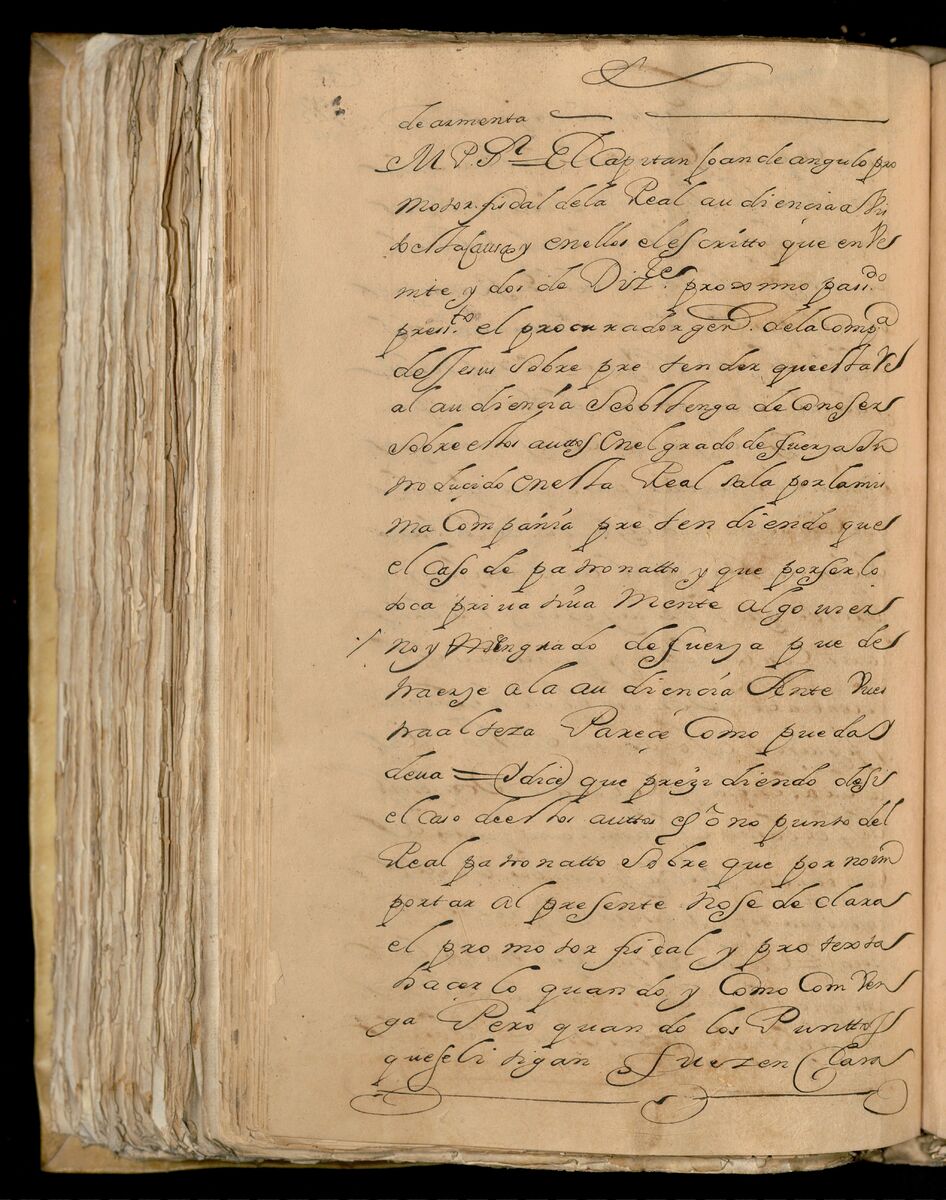 de armenta
M. P. Sr = El Capitan Joan de angulo pro
motor fiscal dela Real audiencia a vis
to esta causa y enellos el escritto que en ve
inte y dos de Dizes proximo passdo
pressto el procurador genl. dela Compa
de Jesus sobre pretender que esta Re
al audiencia se obstenga de Conoser
sobre estos auttos en el grado de fuerza in
troducido en esta Real sala por la mis
ma Compañia pretendiendo que es
el Caso de patronatto y que por ser lo
toca privativa mente al govier
no y ni en grado de fuerza puede
traerse a la audiencia Ante vues
tra alteza Parece Como pueda y
deva = Y dice que prezindiendo de si
el caso de estos auttos es o no punto del
Real patronatto sobre que por no im
portar al presente no se declara
el promotor fiscal y protexta
hacerlo quando y Como Com ven
ga Pero quando los Punttos
que se litigan fuezen Clara